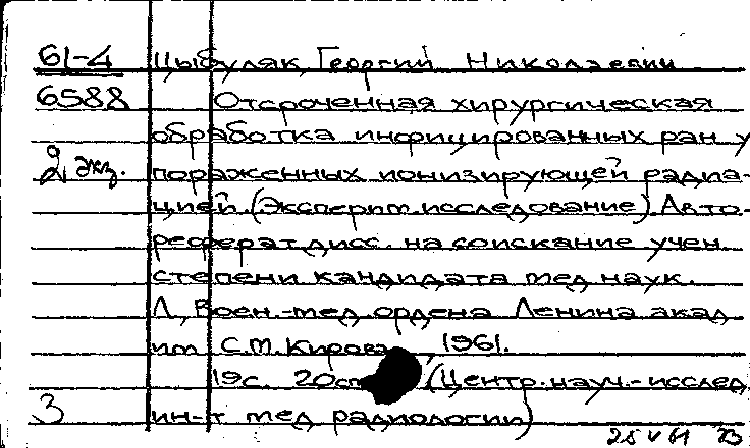 61-4 Цыбуляк, Георгий Николаевич
6588 Отсроченная хирургическая
обработка инфицированных ран у
2 экз. пораженных ионизирующей радиа-
цией. (Эксперим. исследование). Авто-
реферат дисс. на соискание учен.
степени кандидата мед. наук.
Л., Воен.-мед. ордена Ленина акад.
им. С.М. Кирова, 1961.
19с. 20см (Центр. науч.-исслед.
3 ин-т мед. радиологии)
25 V 61